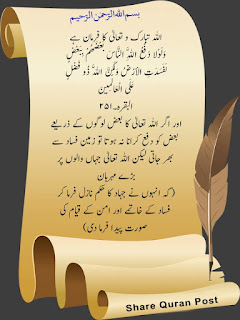 بسم اللہ الرحمن الرحیم
اللہ تبارک و تعالیٰ کا فرمان ہے
وَلَوْلَا دَفْعُ اللَّهِ النَّاسَ بَعْضَهُمْ بِبَعْضٍ
لَفَسَدَتِ الْأَرْضُ وَلَٰكِنَّ اللَّهَ ذُو فَضْلٍ
عَلَى الْعَالَمِينَ
البقرہ۔۲۵۱
اور اگر اللہ تعالیٰ کا بعض لوگوں کے ذریعے
بعض کو دفع کرانا نہ ہوتا تو زمین فساد سے
بھر جاتی لیکن اللہ تعالیٰ جہاں والوں پر
بڑے مہربان
(کہ انہوں نے جہاد کا حکم نازل فرما کر
فساد کے خاتمے اور امن کے قیام کی
صورت پیدا فرما دی)
Share Quran Post